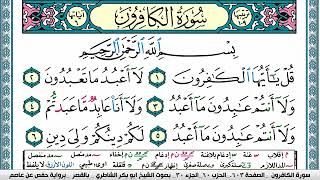 سُورَةُ الْكَافِرُونَ
بِسْمِ اللَّهِ الرَّحْمَٰنِ الرَّحِيمِ
قُلْ يَا أَيُّهَا الْكَافِرُونَ ١ لَا أَعْبُدُ مَا تَعْبُدُونَ ٢
وَلَا أَنْتُمْ عَابِدُونَ مَا أَعْبُدُ ٣ وَلَا أَنَا عَابِدٌ مَا عَبَدْتُمْ ٤
وَلَا أَنْتُمْ عَابِدُونَ مَا أَعْبُدُ ٥ لَكُمْ دِينُكُمْ وَلِيَ دِينِ ٦
سورة الكافرون الصفحة ٦٠٣ الجزء ٣٠ بصوت الشيخ ابو بكر الشاطري بالقصر برواية حفص عن عاصم